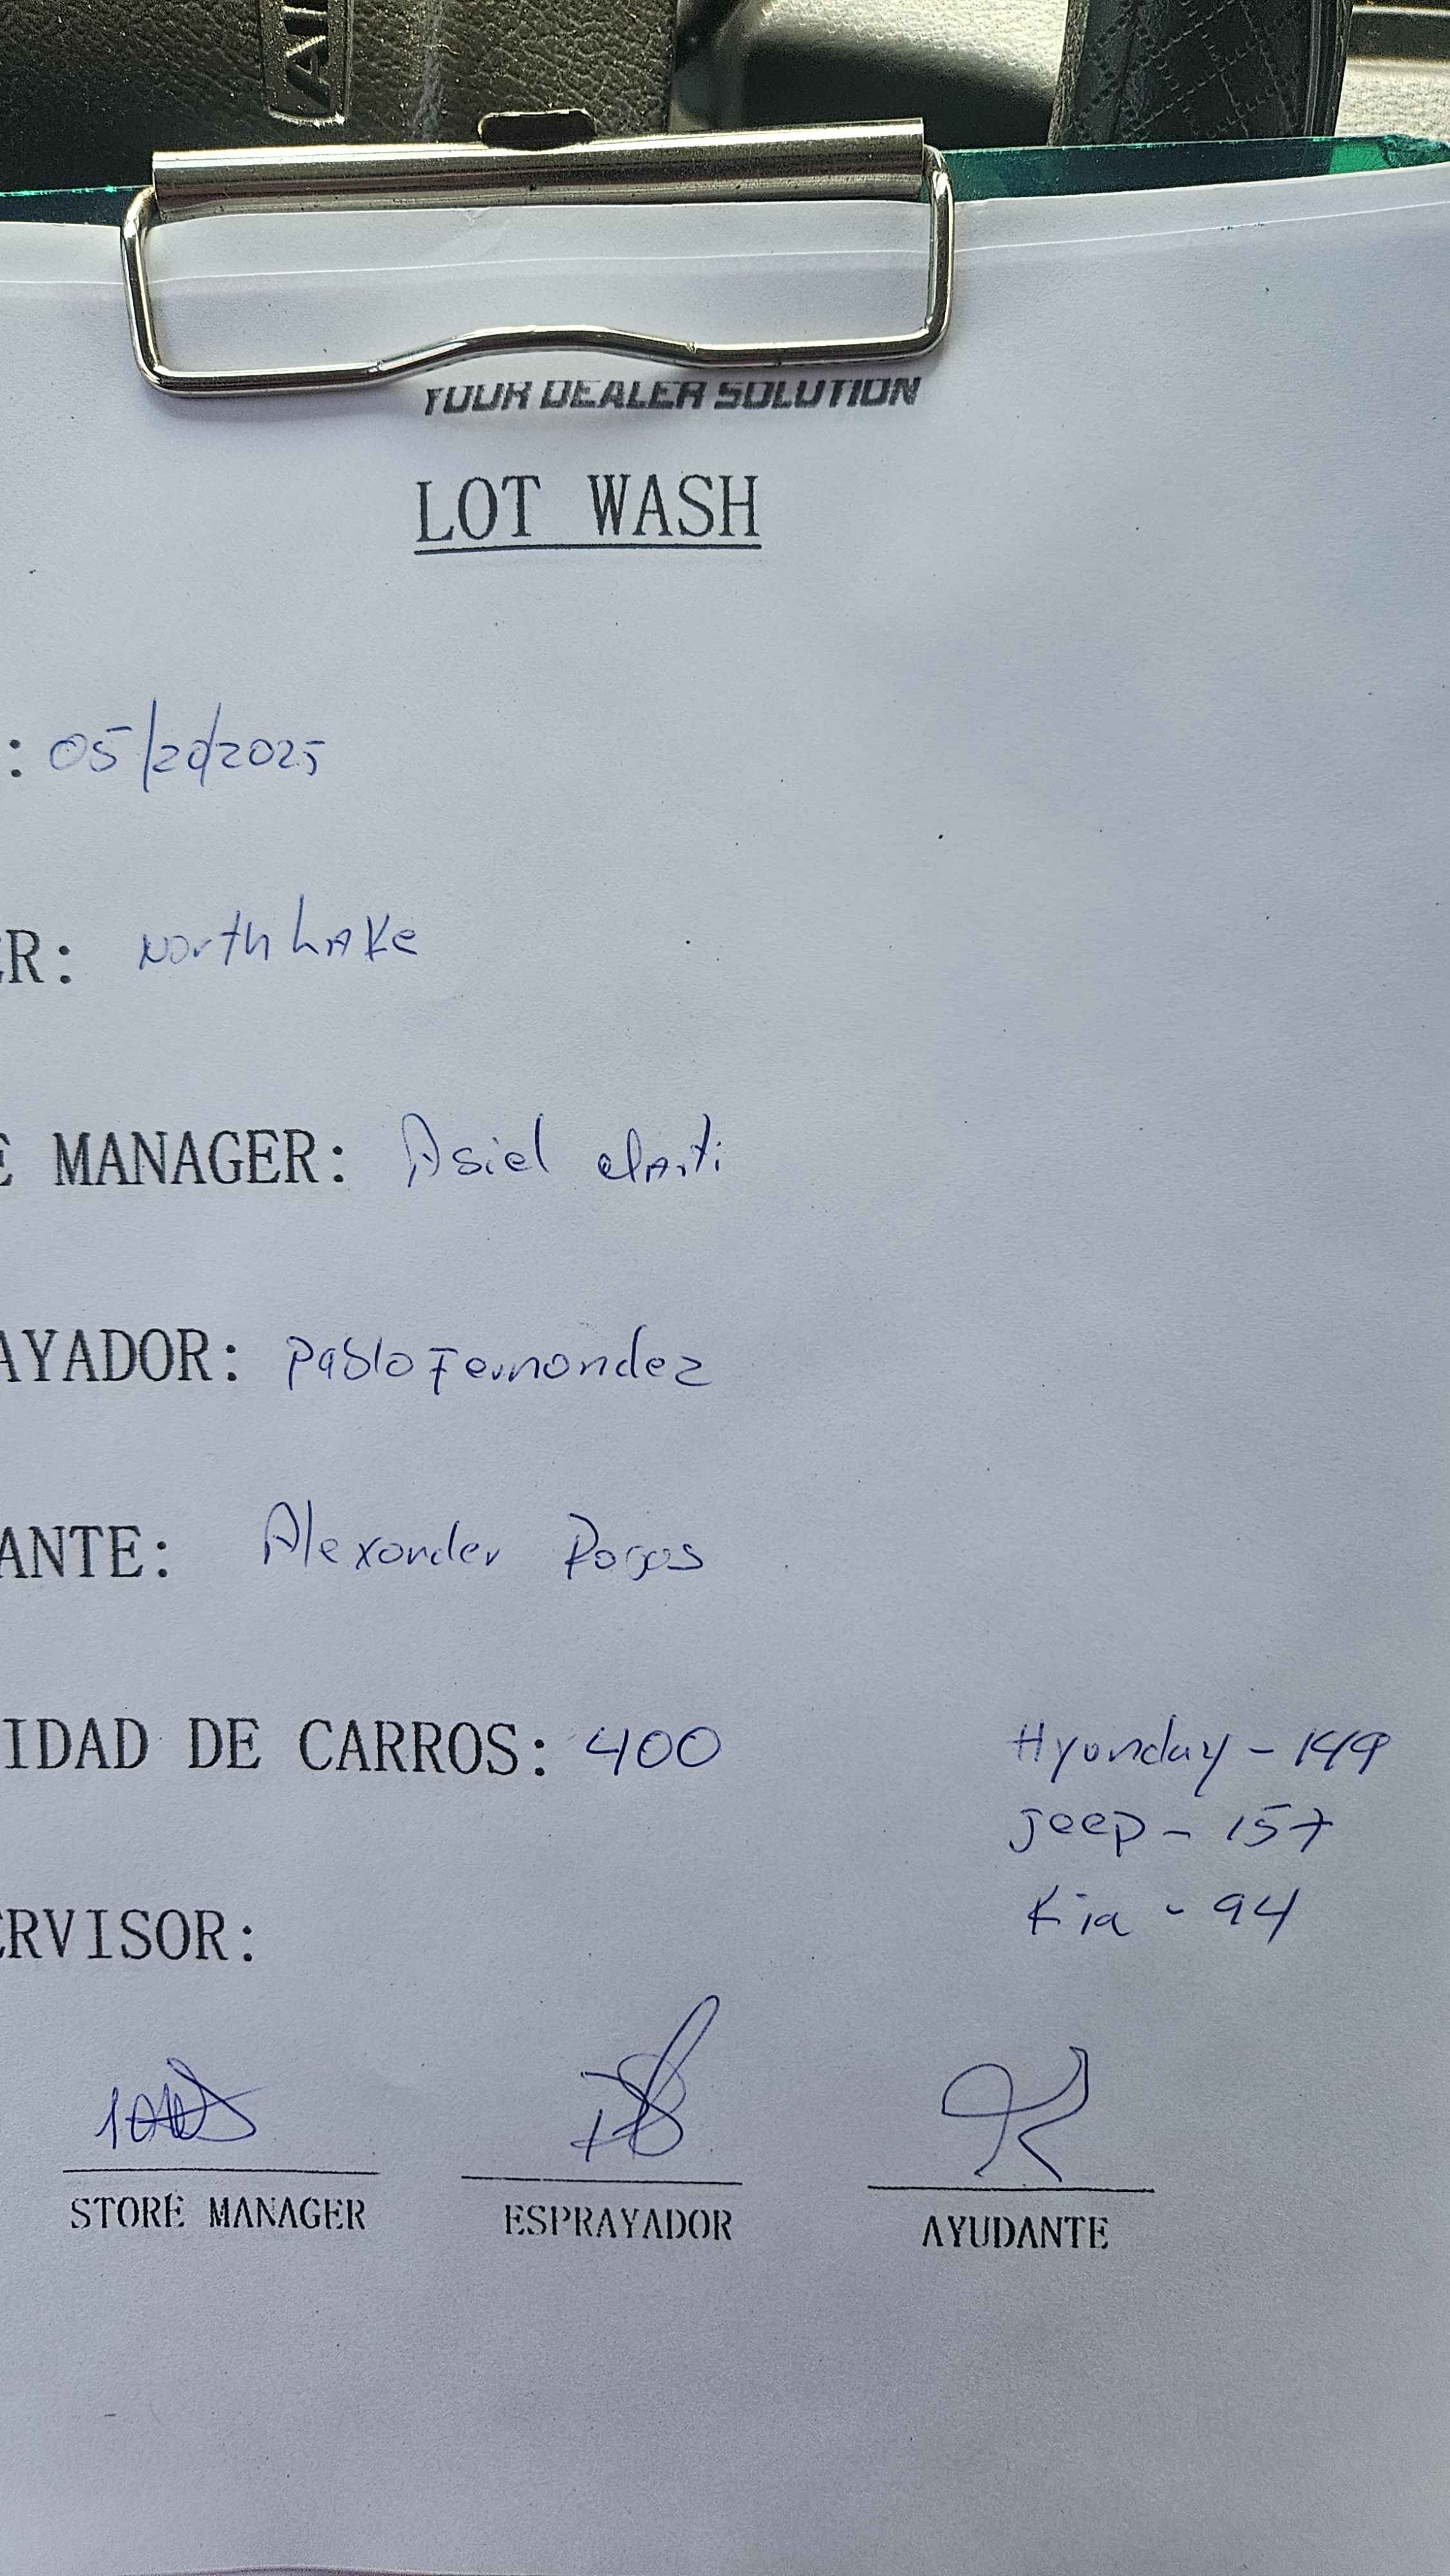 YOUR DEALER SOLUTION
LOT WASH
: 05/20/2025
ER: North LAKe
E MANAGER: Asiel
AYADOR: Pablo Fernandez
ANTE: Alexander
IDAD DE CARROS: 400
Hyunday - 149
Jeep - 157
Kia - 94
ERVISOR:
STORE MANAGER
ESPRAYADOR
AYUDANTE